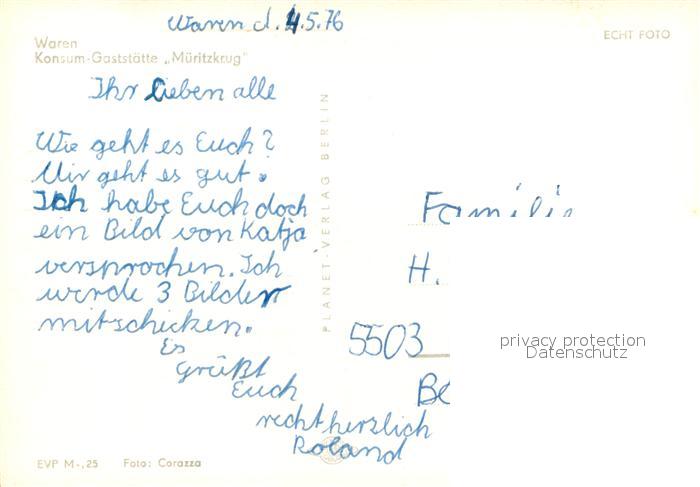 Waren d. 4.5.76
Waren
Konsum-Gaststätte „Müritzkrug"
ECHT FOTO
Ihr lieben alle
Wie geht es Euch?
Mir geht es gut.
Ich habe Euch doch
ein Bild von Katja
versprochen. Ich
werde 3 Bilder
mitschicken.
Es
grüßt
Euch
recht herzlich
Roland
PLANET-VERLAG BERLIN
Familie
H.
5503
Be
privacy protection
Datenschutz
EVP M -,25 Foto: Corazza